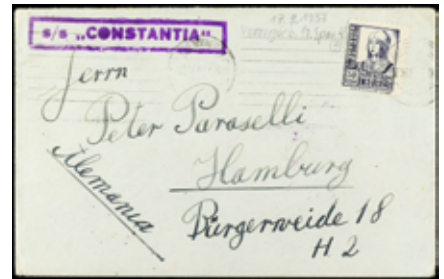 s/s „CONSTANTIA"
17.9.1937
Herrn
Peter Paraselli
Hamburg
Alemania
Bürgerweide 18
H 2